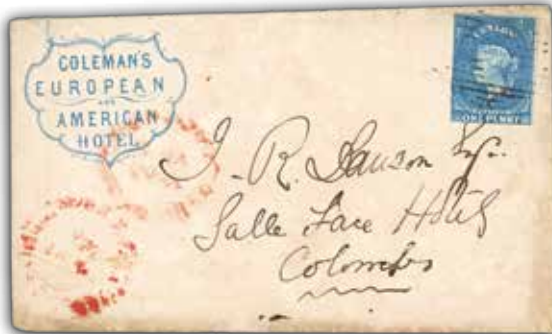 COLEMAN'S
EUROPEAN
AND
AMERICAN
HOTEL
CEYLON
ONE PENNY
J. R. Dawson Esqr.
Galle Face Hotel
Colombo